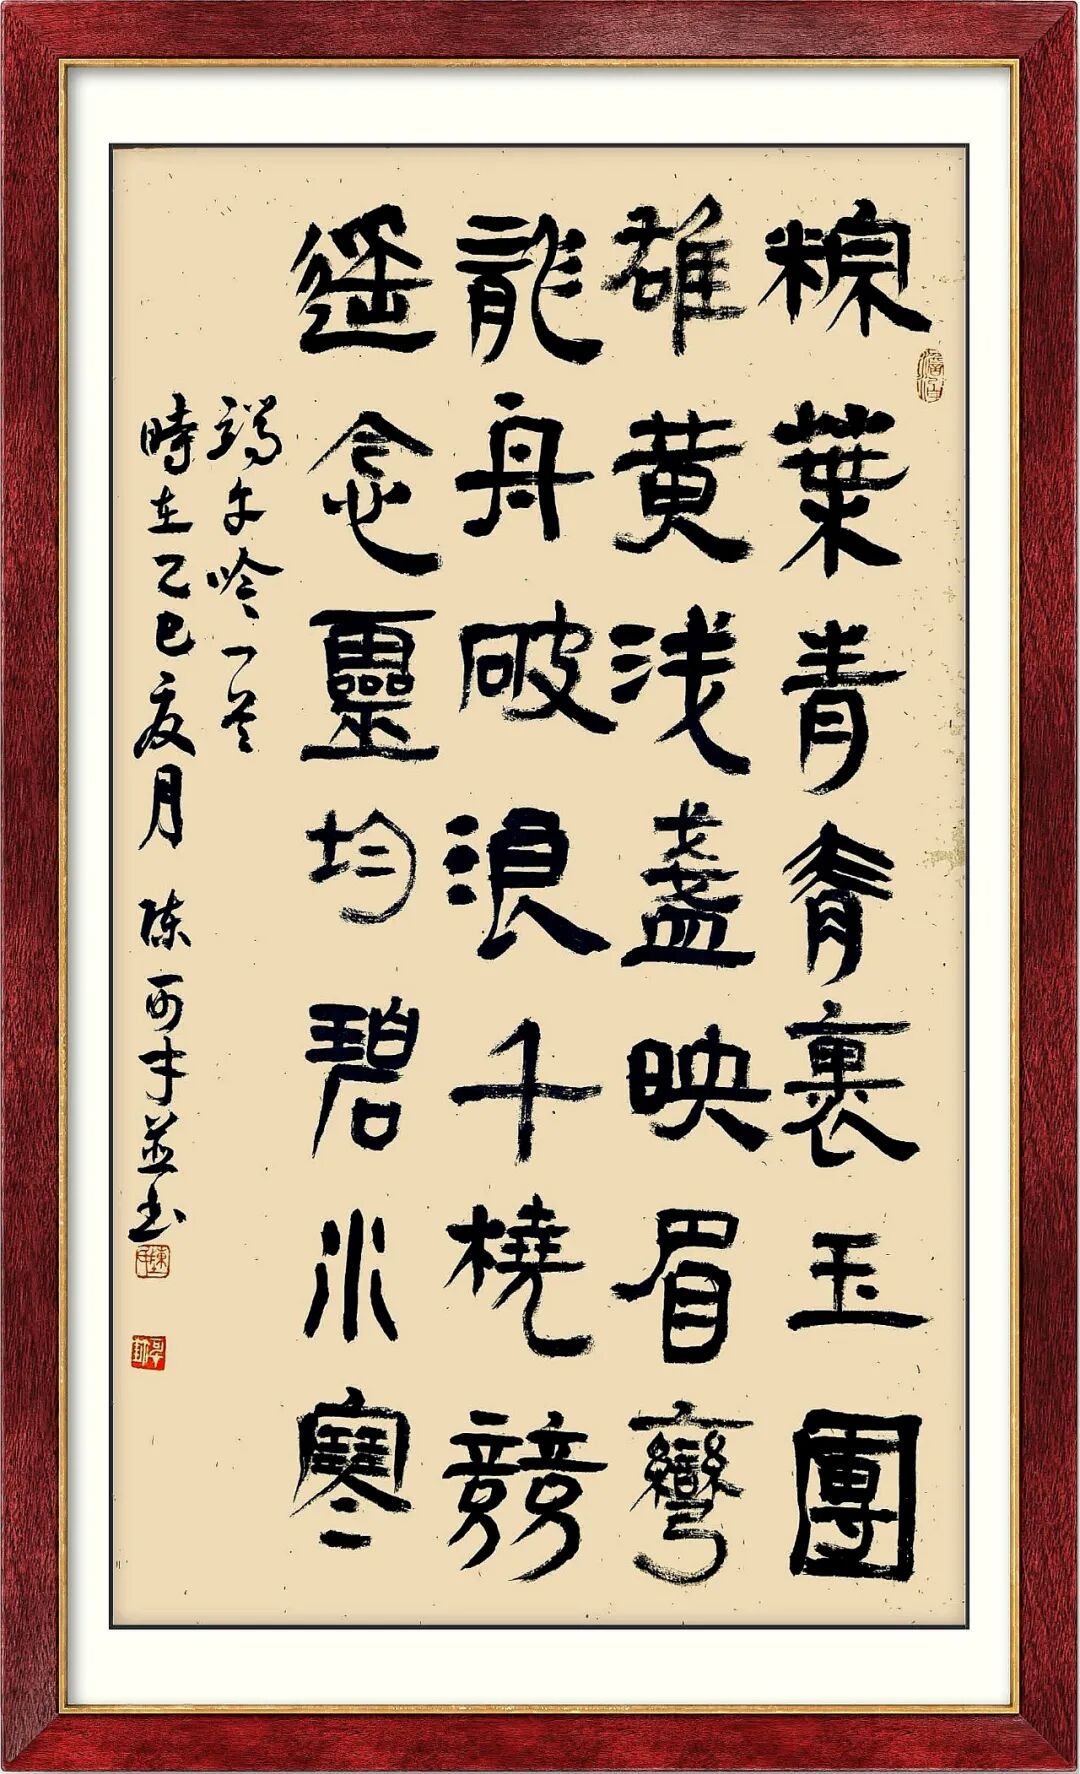 粽葉青青裹玉團
雄黄浅盞映眉彎
龍舟破浪千橈競
遥念靈均碧水寒
端午吟一首
時在乙巳夏月 陈可才並书